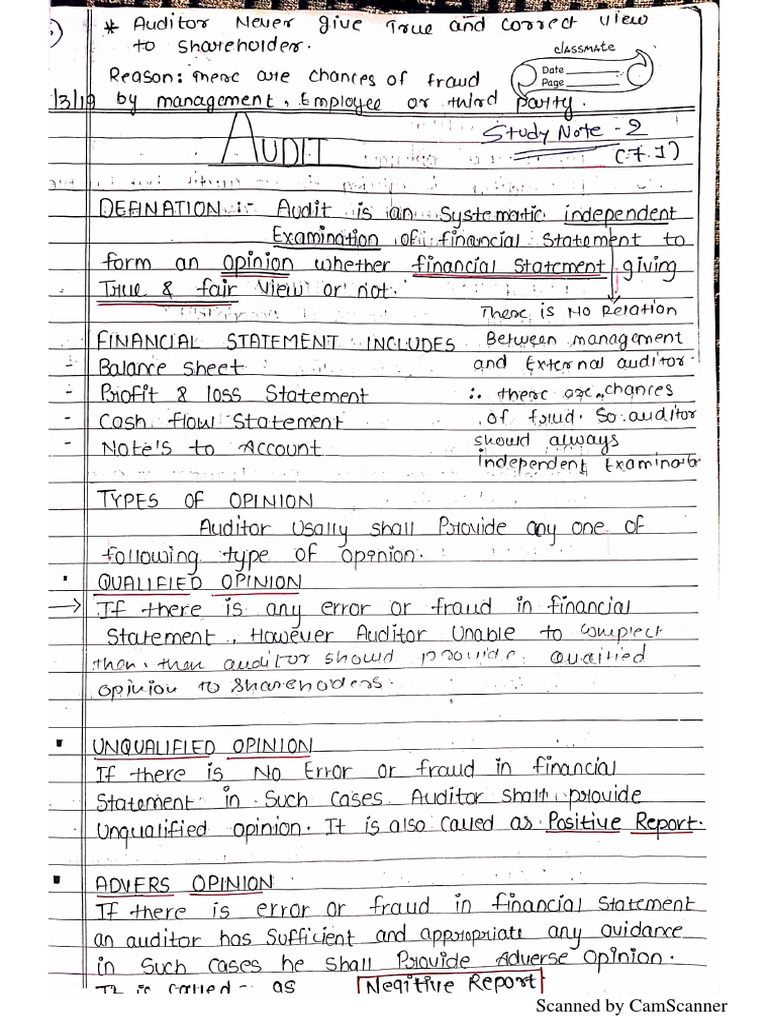 * Auditor Never give True and correct view
to Shareholder.
classmate
Date
Page
Reason: There are chances of fraud
/3/19 by management, Employee or third Party.
AUDIT
Study Note - 2
DEFINATION :- Audit is an Systematic independent
Examination of financial Statement to
form an opinion whether financial Statement giving
True & fair view or not.
There is No Relation
Between management
and External auditor.
∴ there are chances
of fraud. So auditor
should always
independent Examinator
FINANCIAL STATEMENT INCLUDES
- Balance sheet
- Profit & loss Statement
- Cash flow Statement
- Note's to Account
TYPES OF OPINION
Auditor Usally shall Provide any one of
following type of opinion.
QUALIFIED OPINION
→ If there is any error or fraud in financial
Statement, However Auditor Unable to complect
then, then auditor should provide
opinion to Shareholders.
UNQUALIFIED OPINION
If there is No Error or fraud in financial
Statement in Such cases Auditor shall provide
Unqualified opinion. It is also called as Positive Report.
ADVERS OPINION
If there is error or fraud in financial Statement
an auditor has Sufficient and appropriate any
in Such cases he shall Provide Adverse Opinion.
This is called as Negitive Report
Scanned by CamScanner